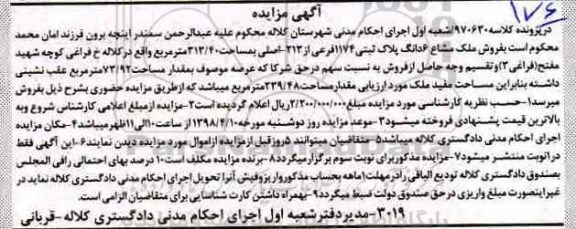 ۱۷۶
آگهی مزایده
درپرونده کلاسه۹۷۰۶۳۰/شعبه اول اجرای احکام مدنی شهرستان کلاله محکوم علیه عبدالرحمن سمندر اینچه برون فرزند امان محمد
محکوم است بفروش ملک مشاع ۶دانگ پلاک ثبتی۱۱۷۴فرعی از۲۱۳-اصلی بمساحت۳۱۳/۴۰مترمربع واقع درکلاله خ فراغی کوچه شهید
مفتح(فراغی۳)وتقسیم وجه حاصل ازفروش به نسبت سهم درحق شرکا که عرصه موصوف بمقدار مساحت۷۳/۹۲مترمربع عقب نشینی
داشته بنابراین مساحت مفید ملک مورد ارزیابی مقدار مساحت۲۳۹/۴۸مترمربع میباشد که ازطریق مزایده حضوری بشرح ذیل بفروش
میرسد۱-حسب نظریه کارشناسی مورد مزایده مبلغ۲/۲۰۰/۰۰۰/۰۰۰ریال اعلام گردیده است۲-مزایده ازمبلغ اعلامی کارشناس شروع وبه
بالاترین قیمت پیشنهادی فروخته میشود۳-موعد مزایده روز دوشنبه مورخه۱۳۹۸/۴/۱۰ از ساعت۱۰الی۱۱ظهرمیباشد۴-مکان مزایده
اجرای احکام مدنی دادگستری کلاله میباشد۵-متقاضیان میتوانند ۵روزقبل ازمزایده ازاموال مورد مزایده دیدن نمایند۶-این آگهی فقط
درانوبت منتشر میشود۷-مزایده مذکوربرای نوبت سوم برگزارمیگردد۸-برنده مزایده مکلف است۱۰درصد بهای احتمالی رافی المجلس
بصندوق دادگستری کلاله تودیع الباقی رادرمهلت(۱ماهه بحساب مذکورواریزوفیش آنرا تحویل اجرای احکام مدنی دادگستری کلاله نماید در
غیراینصورت مبلغ واریزی درحق صندوق دولت ضبط میگردد۹-بهمراه داشتن کارت شناسایی برای متقاضیان الزامی است.
۳۰۱۹-مدیردفترشعبه اول اجرای احکام مدنی دادگستری کلاله-قربانی